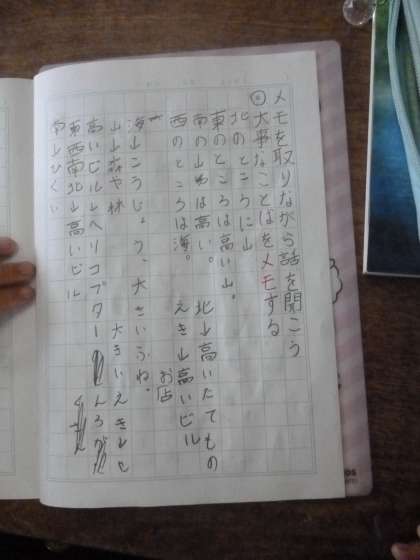 メモを取りながら話を聞こう
大事なことばをメモする
北のところに山
東のところは高い山。
南の山わは高い。 北→高いたてもの
西のところは海。 えき→高いビル
お店
海→こうじょう、大きいふね。
山→森や林 大きいえき
高いビル→ヘリコプター
東西南北→高いビル
南→ひくい